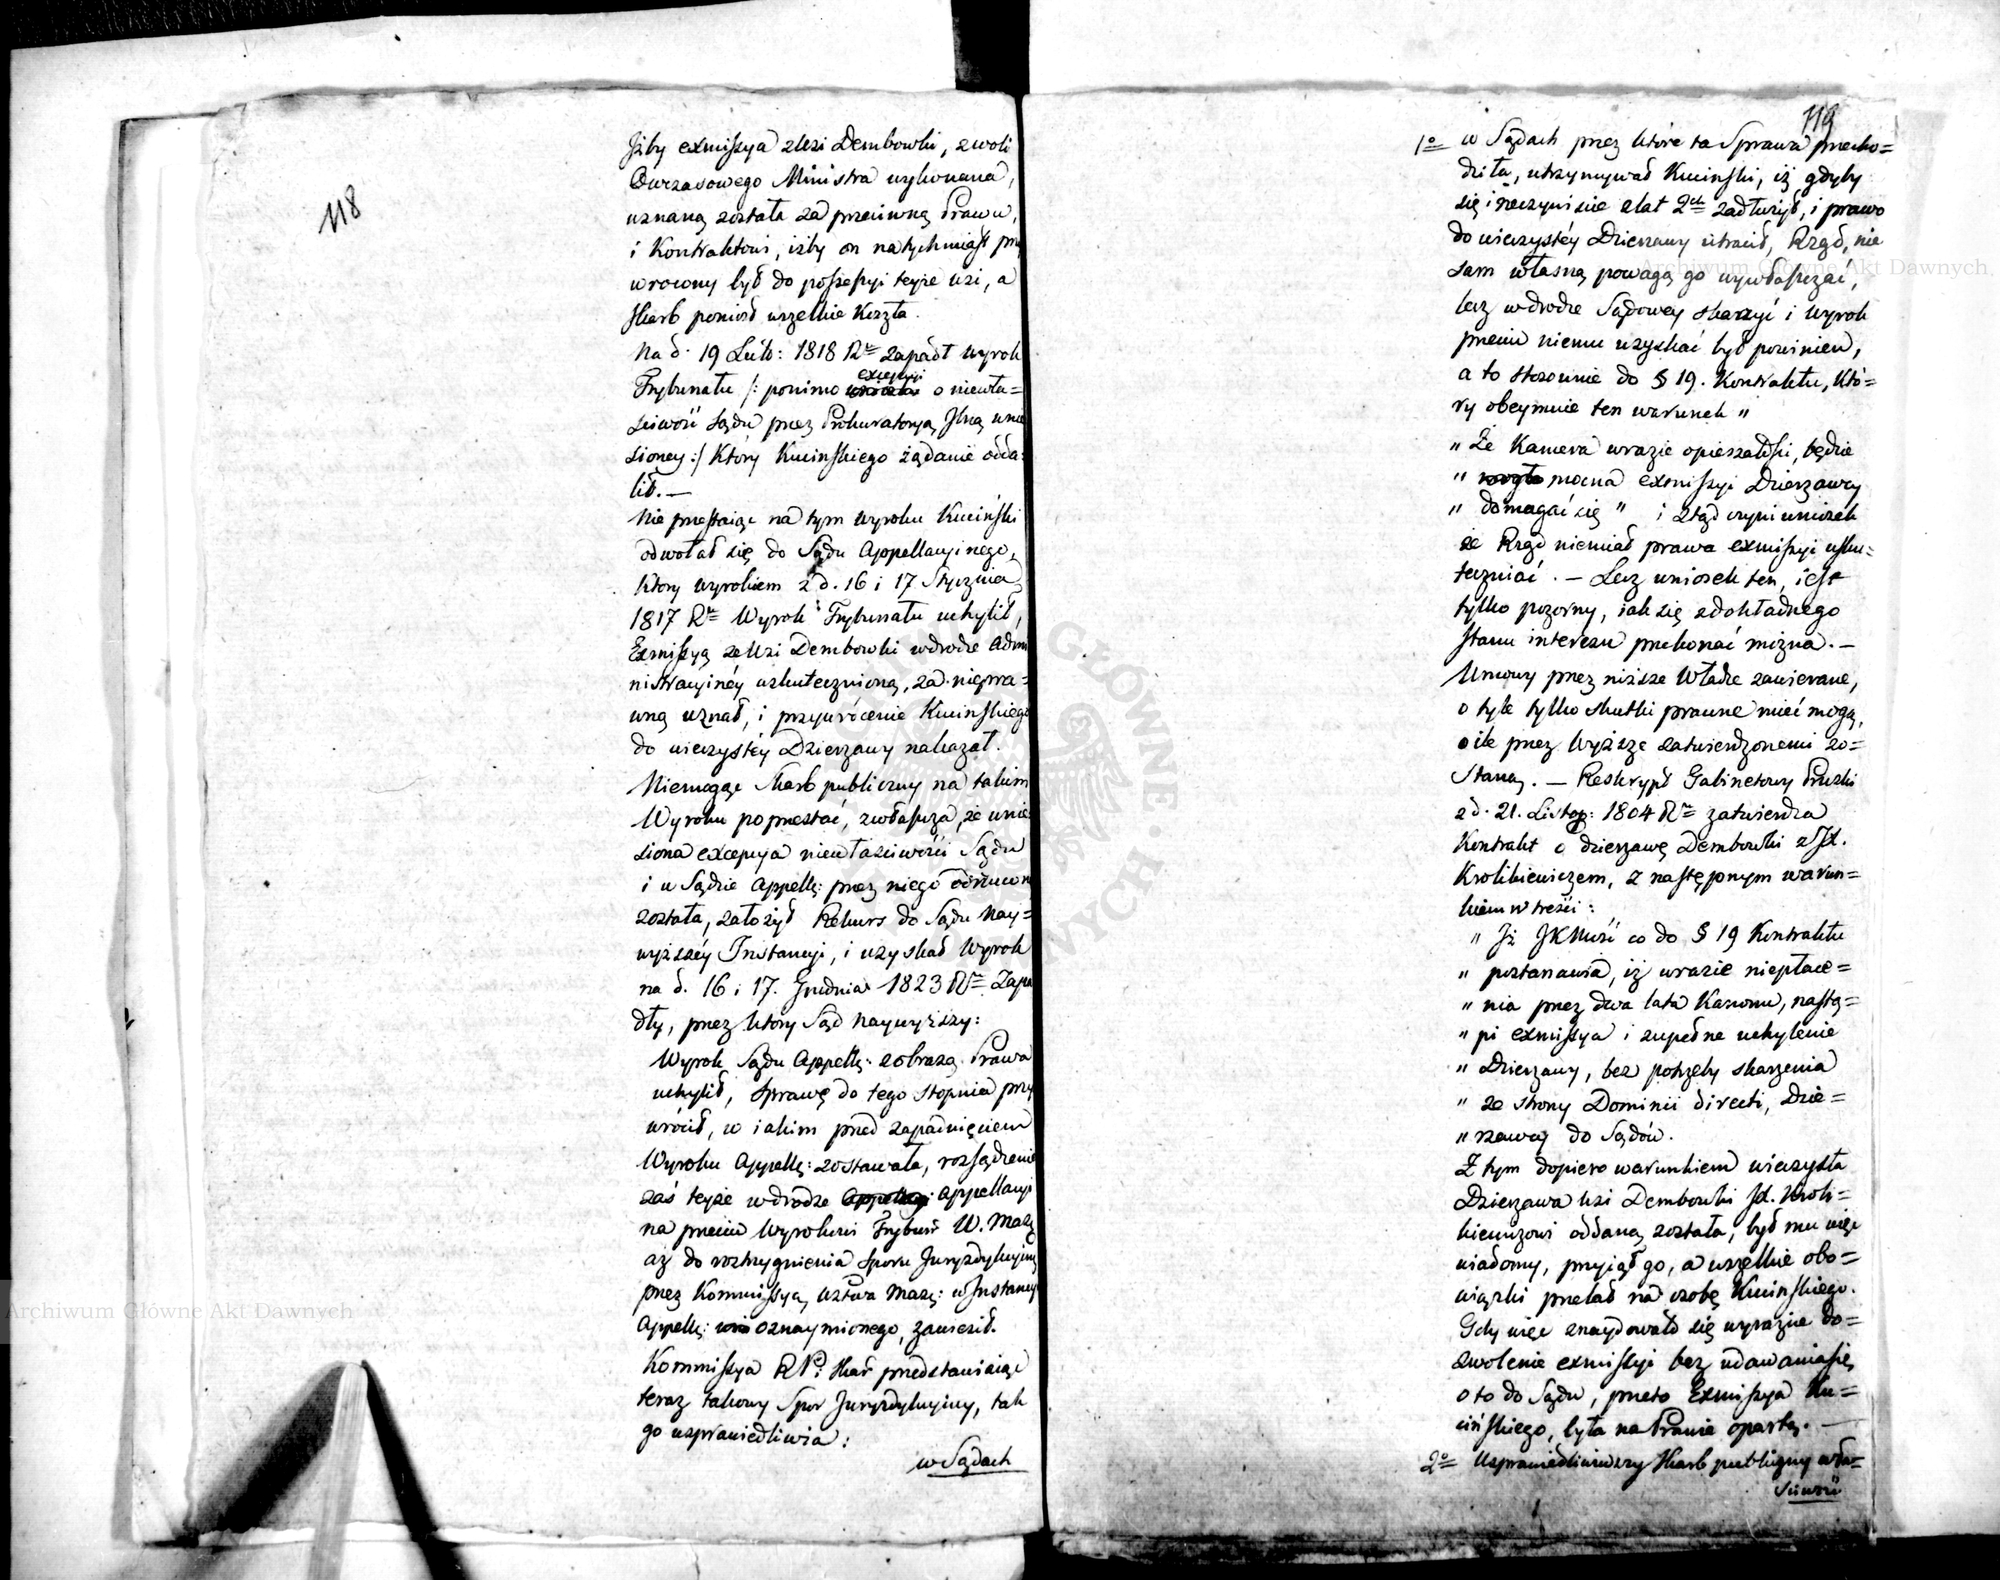 118
Jżby exmissya z Wsi Dembowki, z woli
Ówczasowego Ministra wykonana,
uznaną została za przeciwną Prawu,
i Kontraktowi, iżby on natychmiast prz
wrocony był do possessyi teyże wsi, a
Skarb poniosł wszelkie Koszta.
Na d. 19 Lut: 1818 R. zapadł wyrok
Trybunału /: pomimo excepcyi o niewła=
sciwość Sądu przez Prokuratoryą Jlną wnie
sioney :/ Który Kucinskiego żądanie odda=
lił. —
Nie przestaiąc na tym wyroku Kuciński
odwołał się do Sądu Appellacyinego,
Ktory wyrokiem z d. 16 i 17 Stycznia
1817 R. Wyrok Trybunału uchylił,
Exmissyą ze Wsi Dembowki w drodze Admi
nistracyinéy uskutecznioną, za niepra=
wną uznał, i przywrócenie Kucinskiego
do wieczystéy Dzierzawy nakazał.
Niemogąc Skarb publiczny na takim
Wyroku poprzestać, zwłaszcza, że wnie
siona excepcya niewłasciwości Sądu
i w Sądzie Appell: przez niego odrzucon
została, założył Rekurs do Sądu Nay=
wyższéy Instancyi, i uzyskał Wyrok
na d. 16 i 17. Grudnia 1823 R. Zapa
dły, przez ktory Sąd Naywyższy:
Wyrok Sądu Appell: z obrazą Prawa
uchylił, Sprawę do tego stopnia przy
wrócił, w iakim przed zapadnięciem
Wyroku Appell: zostawała, rozsądzenie
zaś teyże w drodze Appellacyi
na przeciw Wyrokowi Trybun: W. Maz:
aż do rozstrzygnienia Sporu Juryzdykcyin
przez Kommissyą Wztwa Maz: w Instancyi
Appell: oznaymionego, zawiesił.
Kommissya RP. Skar: przedstawiaiąc
teraz takowy Spor Juryzdykcyiny, tak
go usprawiedliwia:
w Sądach
119
1o w Sądach przez które ta Sprawa przecho=
dziła, utrzymywał Kucinski, iż gdyby
się i rzeczywiscie z lat 2ch zadłużył, i prawo
do wieczystéy Dzierzawy utracił, Rząd, nie
sam własną powagą go wywłaszczać,
lecz w drodze Sądowey skarzyć i wyrok
przeciw niemu uzyskać był powinien,
a to stosownie do § 19. Kontraktu, któ=
ry obeymuie ten warunek "
" Że Kamera w razie opieszałosci, będzie
" mocna exmissyi Dzierzawcy
" domagać się " i ztąd czyni wniosek
że Rząd niemiał prawa exmissyi usku=
teczniać. — Lecz wniosek ten, iest
tylko pozorny, iak się z dokładnego
stanu interesu przekonać można. —
Umowy przez niższe Władze zawierane,
o tyle tylko skutki prawne mieć mogą,
o ile przez Wyższe zatwierdzonemi zo=
staną. — Reskrypt Gabinetowy Pruski
z d. 21. Listop: 1804 R. zatwierdza
Kontrakt o dzierzawę Dembowki z Jd.
Krolikiewiczem, z następnym warun=
kiem w treści:
" Jż JKMość co do § 19 Kontraktu
" postanawia, iż w razie niepłace=
" nia przez dwa lata Kanonu, nastą=
" pi exmissya i zupełne uchylenie
" Dzierzawy, bez potrzeby skarzenia
" ze strony Dominii directi, Dzie=
" rzawcy do Sądów.
Z tym dopiero warunkiem wieczysta
Dzierzawa Wsi Dembowki Jd. Kroli=
kiewiczowi oddaną została, był mu więc
wiadomy, przyjął go, a wszelkie obo=
wiązki przelał na osobę Kucinskiego.
Gdy więc znaydowało się wyraźne do=
zwolenie exmissyi bez udawania się
o to do Sądu, przeto Exmissya Ku=
cińskiego, była na Prawie opartą. —
2o Usprawiedliwiwszy Skarb publiczny wła=
sciwość
Archiwum Główne Akt Dawnych
Archiwum Główne Akt Dawnych